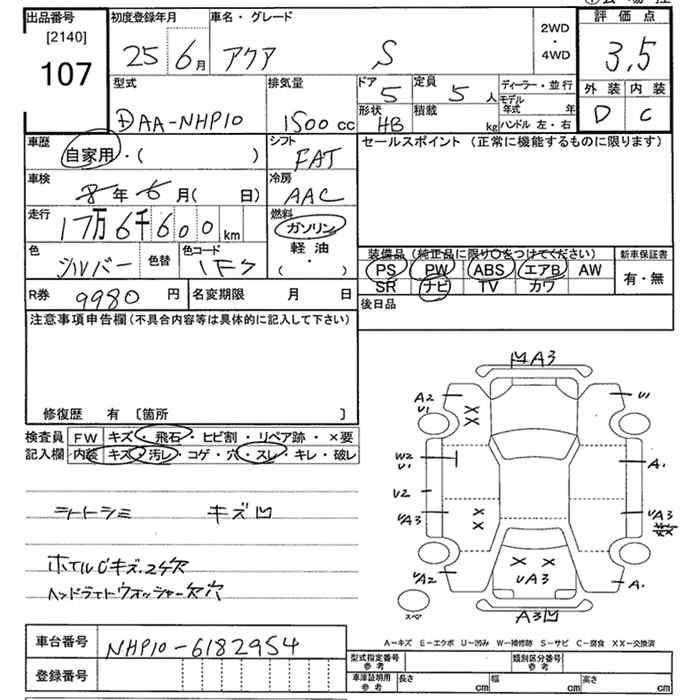 出品番号 初度登録年月 車名・グレード 2WD・4WD 評価点
[2140]
107 25年6月 アクア S 3.5
型式 排気量 ドア 5 定員 5人 ディーラー・並行 外装 内装
DAA-NHP10 1500cc 形状 HB 積載 kg モデル年式 年 D C
ハンドル 左・右
車歴 自家用・( ) シフト FAT セールスポイント (正常に機能するものに限ります)
車検 8年6月( 日) 冷房 AAC
走行 17万6千600km 燃料 ガソリン
軽油
( ・ )
色 シルバー 色替 色コード 1F7
装備品 (純正品に限り○をつけてください) 新車保証書
PS PW ABS エアB AW 有・無
SR ナビ TV カワ
R券 9980円 名変期限 月 日 後日品
注意事項申告欄(不具合内容等は具体的に記入して下さい)
修復歴 有 〔箇所 〕
検査員 FW キズ・飛石・ヒビ割・リペア跡・×要
記入欄 内装 キズ・汚レ・コゲ・穴・スレ・キレ・破レ
シートシミ キズ凹
ホイルCキズ.2ケ欠
ヘッドライトウォッシャー欠穴
凹A3
A2 U1 XX U1
W2 U1 A1
U2
UA3 XX UA3
XX
UA2 XX UA3 A1
スペア A3凹
A-キズ E-エクボ U-凹み W-補修跡 S-サビ C-腐食 XX-交換済
車台番号 NHP10-6182954
登録番号
型式指定番号 参考 類別区分番号 参考
車庫証明用 参考 長さ cm 幅 cm 高さ cm